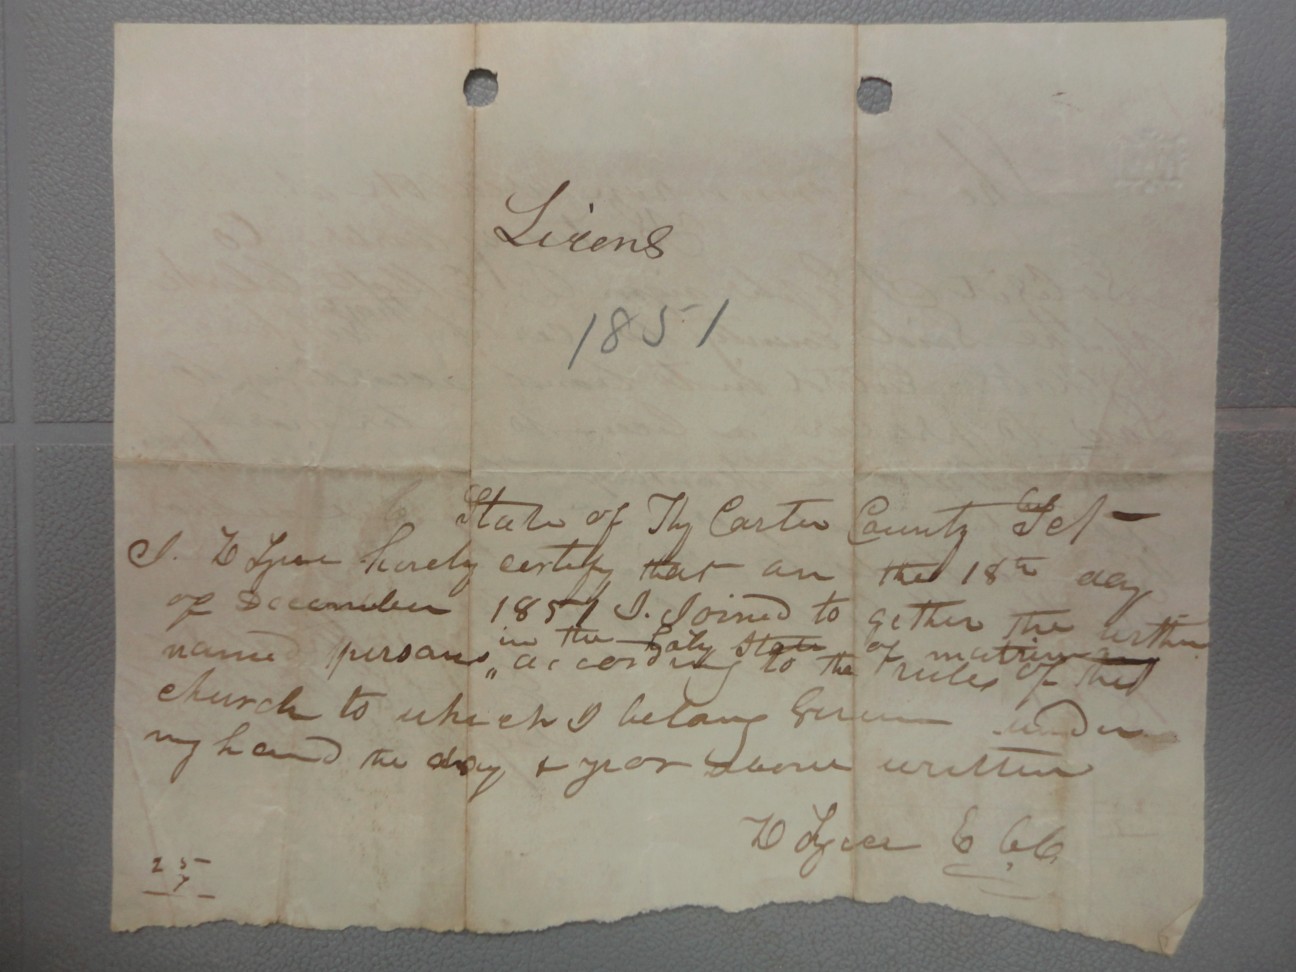 Licens
1851
State of Ky Carter County Sct —
I. W Lyon hereby certify that on the 18th day
of December 1851 I. Joined to gether the within
in the Holy State of matrimony
named persons " according to the rules of the
church to which I belong Given under
my hand the day & year above written
W E C C
25
7